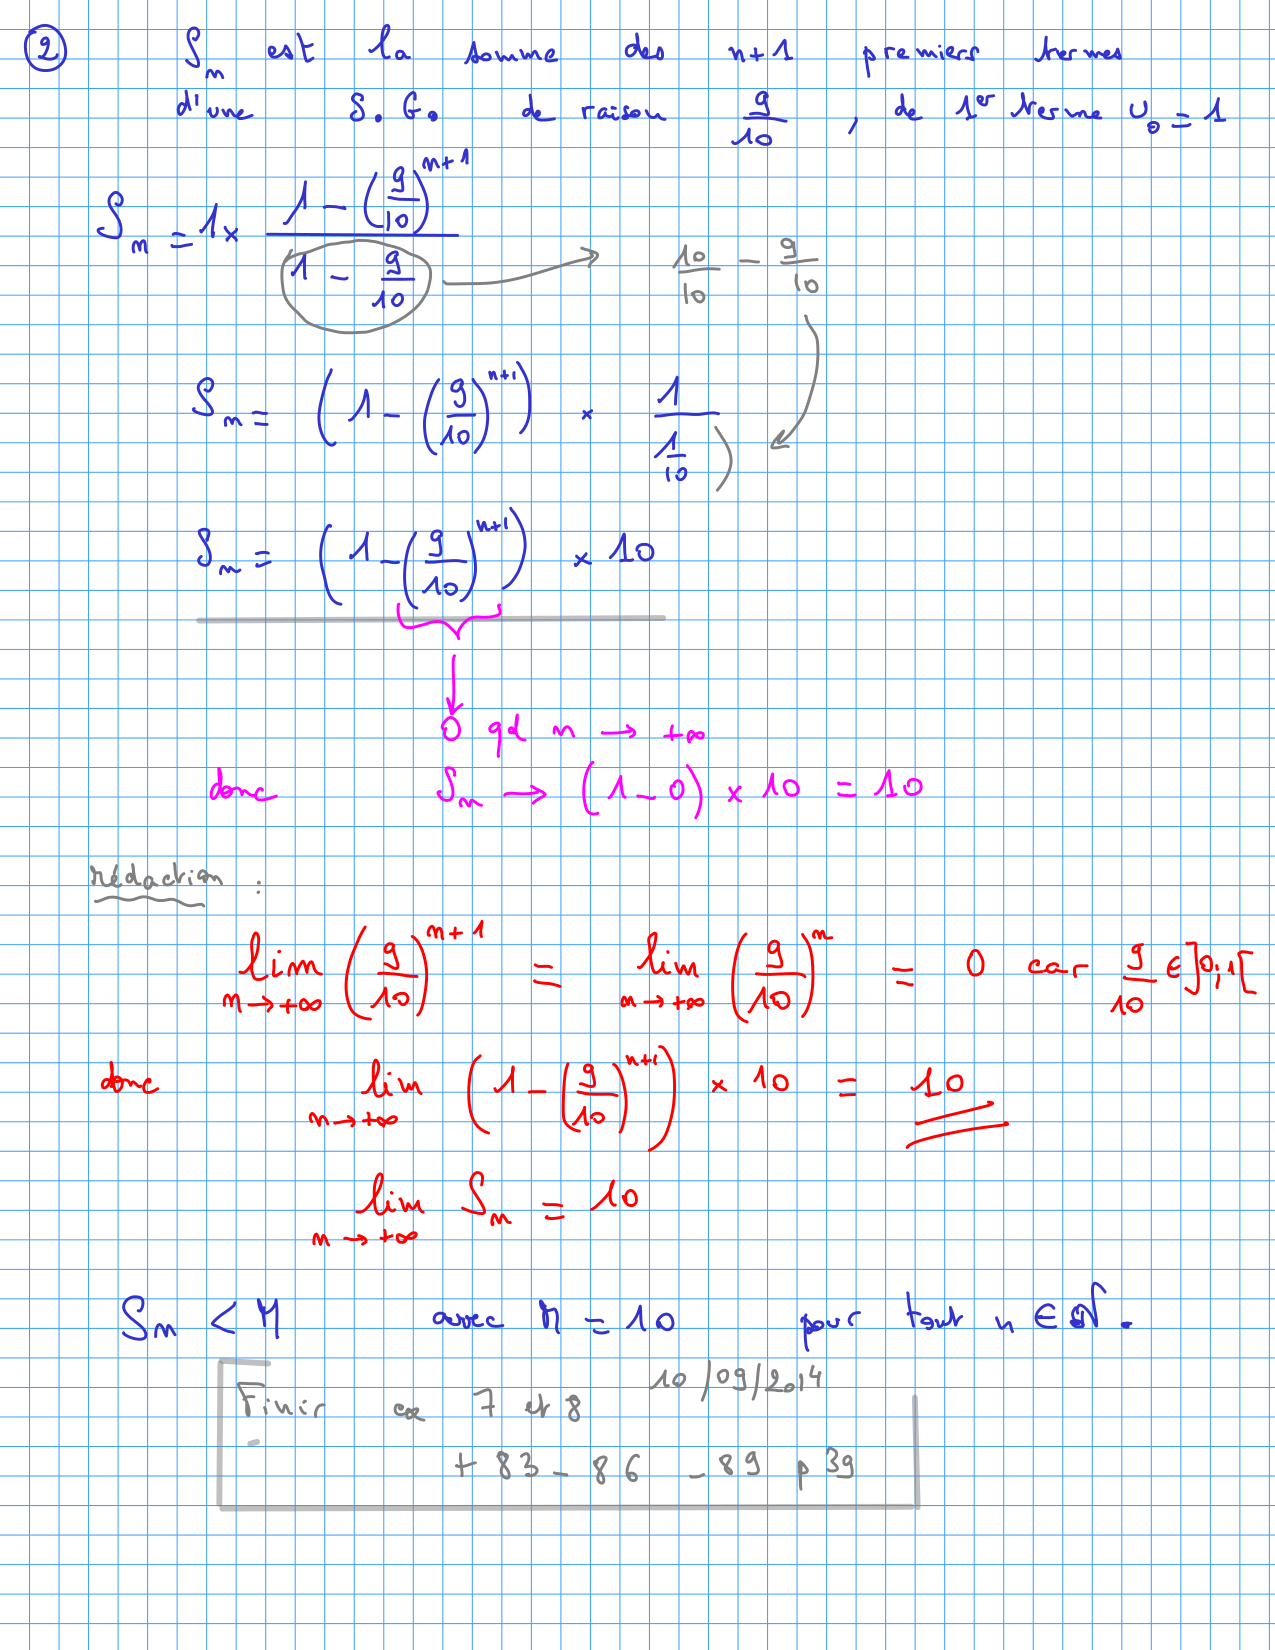 ② Sn est la somme des n+1 premiers termes
d'une S.G. de raison 9/10, de 1er terme u₀ = 1
Sn = 1 × (1 - (9/10)^(n+1)) / (1 - 9/10) → 10/10 - 9/10
Sn = (1 - (9/10)^(n+1)) × 1/(1/10)
Sn = (1 - (9/10)^(n+1)) × 10
0 qd n → +∞
donc Sn → (1 - 0) × 10 = 10
rédaction :
lim n→+∞ (9/10)^(n+1) = lim n→+∞ (9/10)^n = 0 car 9/10 ∈ ]0;1[
donc lim n→+∞ (1 - (9/10)^(n+1)) × 10 = 10
lim n→+∞ Sn = 10
Sn < M avec M = 10 pour tout n ∈ ℕ.
10/09/2014
Finir ex 7 et 8
+ 83 - 86 - 89 p 39